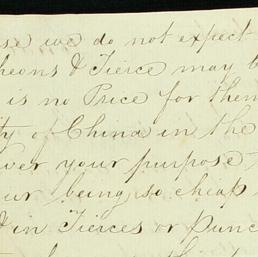 se we do not expect
heons & Tierce may b
is no Price for them
ty of China in the
ver your purpose
ur being so cheap
d in Tierces or Punc